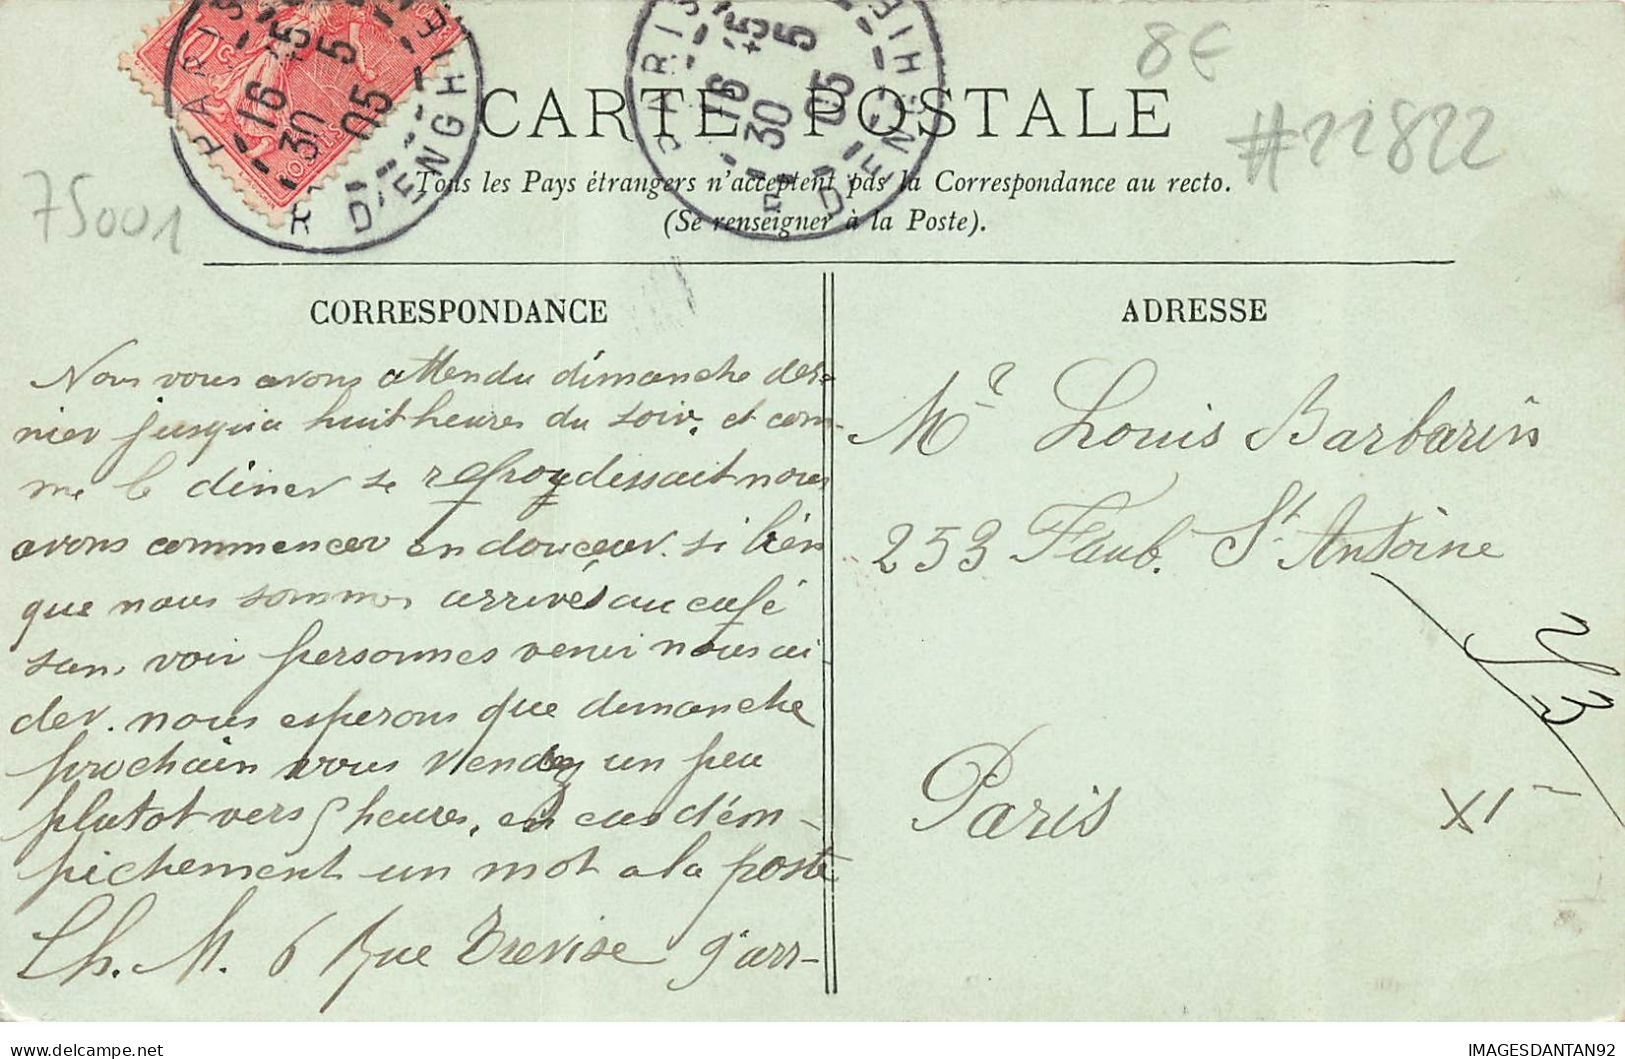 8€
#22822
75001
PARIS R. D'ENGHIEN
16 45
30 5
05
PARIS R. D'ENGHIEN
16 45
30 5
05
CARTE POSTALE
Tous les Pays étrangers n'acceptent pas la Correspondance au recto.
(Se renseigner à la Poste).
CORRESPONDANCE
Nous vous avons attendu dimanche der-
nier jusqu'a huit heures du soir, et com-
me le diner se refroydissait nous
avons commencer en douceur. si bien
que nous sommes arrivés au café
sans voir personnes venir nous ai-
der. nous esperons que dimanche
prochain vous vendez un peu
plutot vers 5 heures, en cas d'ém-
pichement un mot a la poste
Ch. M. 6 Rue Trevise 9e arr-
ADRESSE
Mr Louis Barbarin
253 Faub. St Antoine
Paris
XI
IMAGESDANTAN92